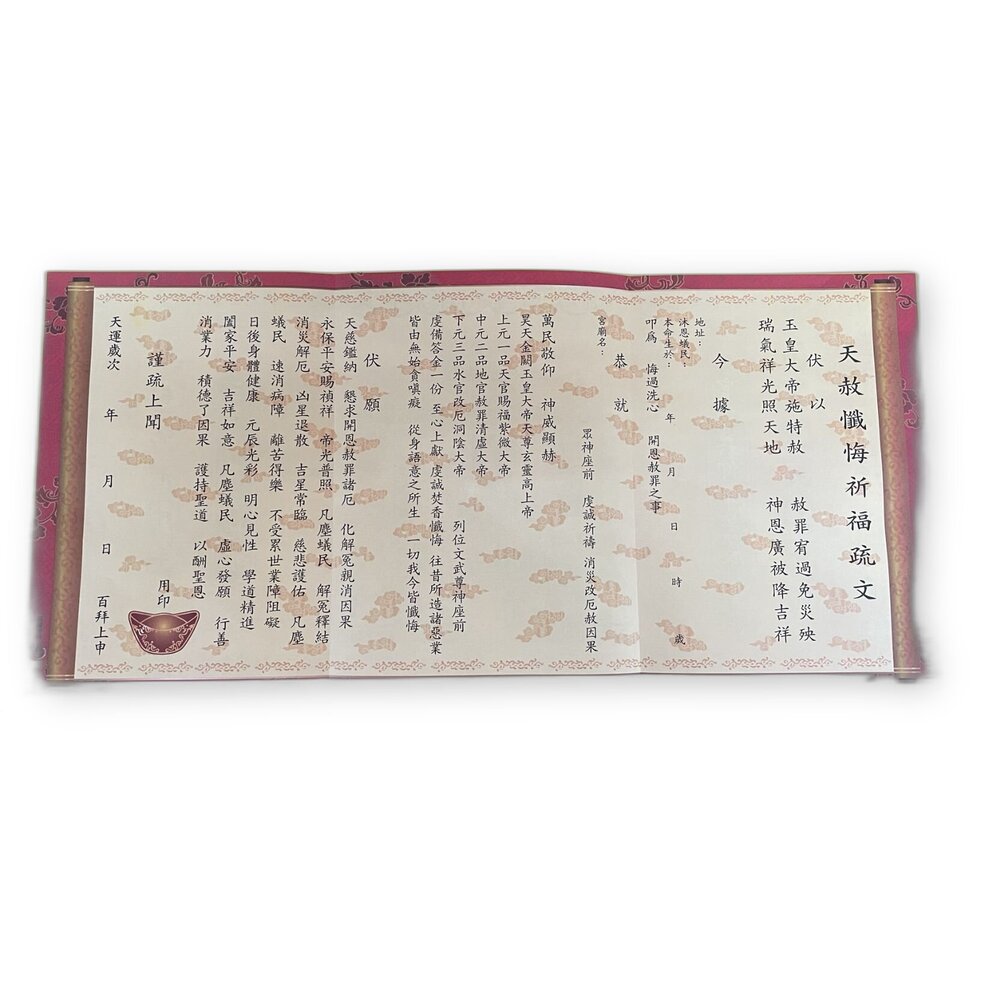 天赦懺悔祈福疏文
伏以
玉皇大帝施特赦 赦罪宥過免災殃
瑞氣祥光照天地 神恩廣被降吉祥
今據
地址：
沐恩蟻民：
本命生於： 年 月 日 時 歲
叩為 悔過洗心 開恩赦罪之事
恭就
宮廟名：
眾神座前 虔誠祈禱 消災改厄赦因果
萬民敬仰 神威顯赫
昊天金闕玉皇大帝天尊玄靈高上帝
上元一品天官賜福紫微大帝
中元二品地官赦罪清虛大帝
下元三品水官改厄洞陰大帝 列位文武尊神座前
虔備答金一份 至心上獻 虔誠焚香懺悔 往昔所造諸惡業
皆由無始貪嗔癡 從身語意之所生 一切我今皆懺悔
伏願
天慈鑑納 懇求開恩赦罪諸厄 化解冤親消因果
永保平安賜禎祥 帝光普照 凡塵蟻民 解冤釋結
消災解厄 凶星退散 吉星常臨 慈悲護佑 凡塵
蟻民 速消病障 離苦得樂 不受累世業障阻礙
日後身體健康 元辰光彩 明心見性 學道精進
闔家平安 吉祥如意 凡塵蟻民 虛心發願 行善
消業力 積德了因果 護持聖道 以酬聖恩
謹疏上聞
用印
天運歲次 年 月 日 百拜上申